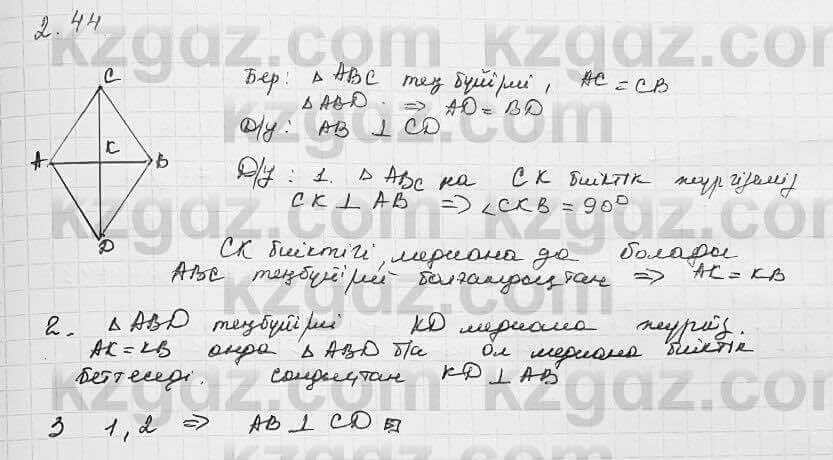 2.44
C
Бер: △ABC тең бүйірлі, AC = CB
△ABD ⇒ AD = BD
Д/у: AB ⊥ CD
A K B
D
Д/у: 1. △ABC на CK биіктік жүргіземіз
CK ⊥ AB ⇒ ∠CKB = 90°
CK биіктігі, медиана да болады
ABC теңбүйірлі болғандықтан ⇒ AK = KB
2. △ABD теңбүйірлі KD медиана жүргіз.
AK = KB онда △ABD б/а ол медиана биіктік
беттеседі. сондықтан KD ⊥ AB
3 1, 2 ⇒ AB ⊥ CD
kzgdz.com